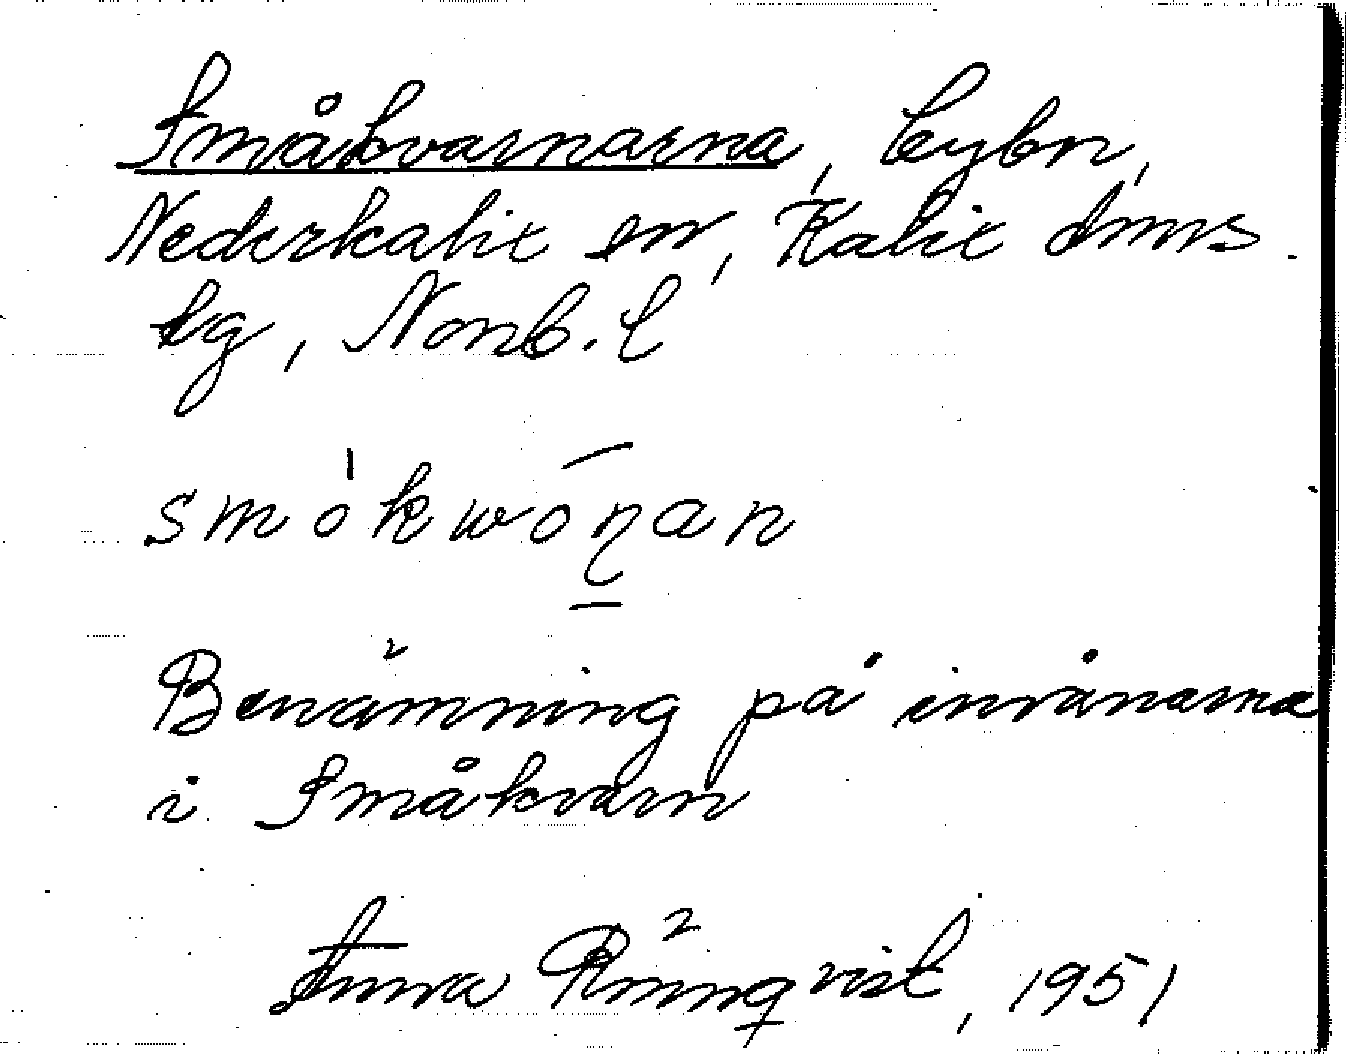 Småkvarnarna, bybn,
Nederkalix sn, Kalix dmns
tg, Nonb. l
smókwóṇan
Benämning på invånarna
i Småkvarn
Anna Rönnqvist, 1951